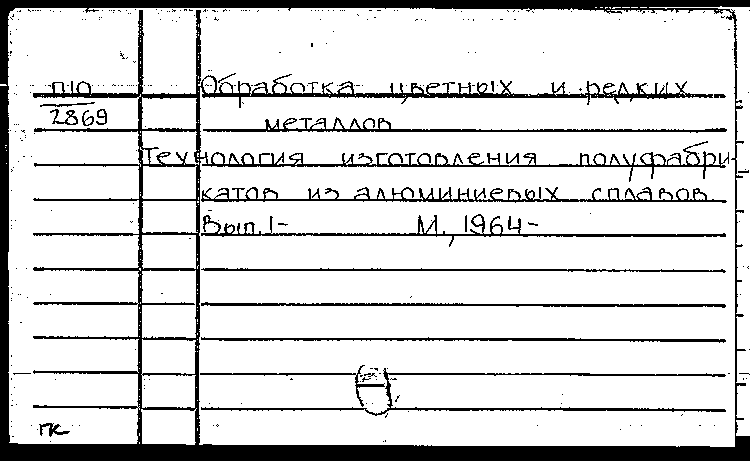 П10 Обработка цветных и редких
2869 металлов
Технология изготовления полуфабри-
катов из алюминиевых сплавов
Вып.1- М., 1964-
ПК